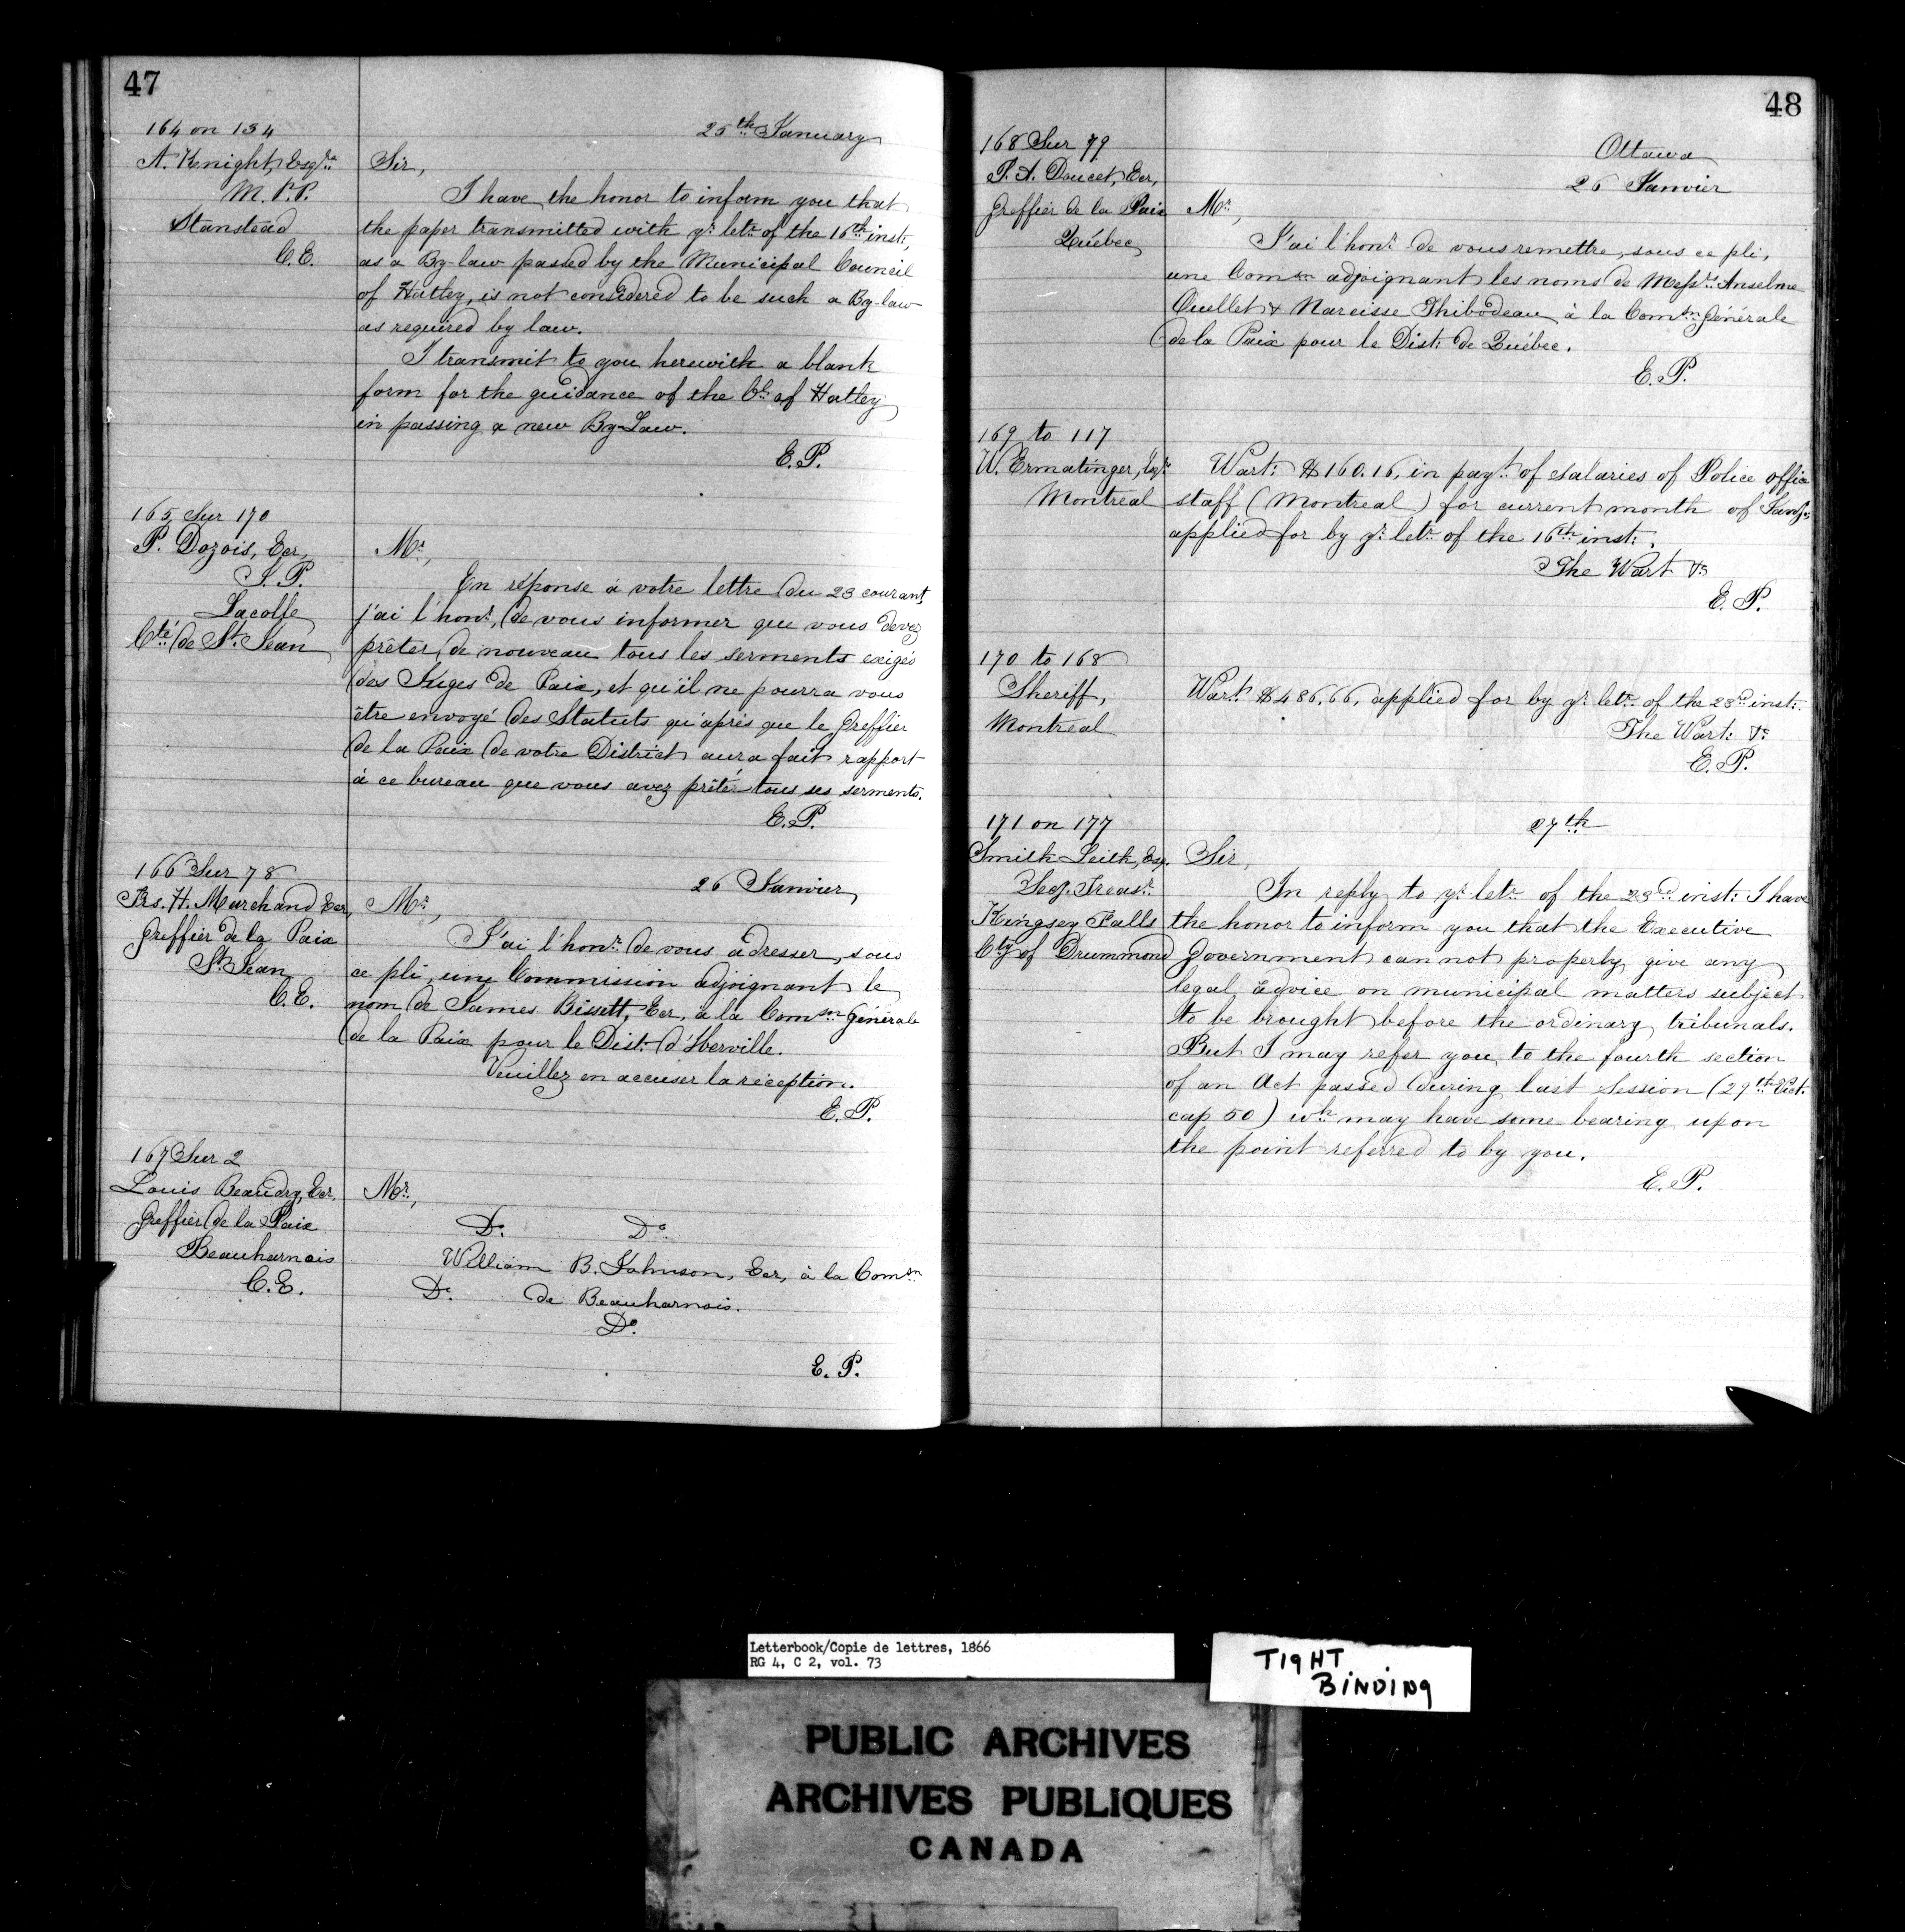 47
164 on 134
A. Knight, Esqre
M.P.P.
Stanstead
C.E.
25th January
Sir,
I have the honor to inform you that
the paper transmitted with yr letr of the 16th inst:,
as a By-law passed by the Municipal Council
of Hatley, is not considered to be such a By-law
as required by law.
I transmit to you herewith a blank
form for the guidance of the Cl: of Hatley
in passing a new By-Law.
E.P.
165 Sur 170
P. Dozois, Ecr,
J.P.
Lacolle
Cté de St. Jean
Mr,
En réponse à votre lettre du 23 courant,
j'ai l'honr, de vous informer que vous devez
prêter de nouveau tous les serments exigés
des Juges de Paix, et qu'il ne pourra vous
être envoyé des Statuts qu'après que le Greffier
de la Paix de votre District aura fait rapport
à ce bureau que vous avez prêté tous ses serments.
E.P.
166 Sur 78
Frs. H. Marchand Ecr,
Greffier de la Paix
St Jean
C.E.
26 Janvier
Mr,
J'ai l'honr de vous adresser, sous
ce pli, une Commission adjoignant le
nom de James Bissett, Ecr, à la Comsn Générale
de la Paix pour le Dist: d'Iberville.
Veuillez en accuser la réception.
E.P.
167 Sur 2
Louis Beaudry, Ecr.
Greffier de la Paix
Beauharnois
C.E.
Mr,
Do. Do.
William B. Johnson, Ecr, à la Comsn
Do. de Beauharnois.
Do.
E.P.
48
168 Sur 79
P.A. Doucet, Ecr,
Greffier de la Paix
Québec
Ottawa
26 Janvier
Mr,
J'ai l'honr de vous remettre, sous ce pli,
une Comsn adjoignant les noms de Messrs Anselme
Ouellet & Narcisse Thibodeau à la Comsn Générale
de la Paix pour le Dist: de Québec.
E.P.
169 to 117
W. Ermatinger, Esqr
Montreal
Wart: $160.16, in payt of salaries of Police office
staff (Montreal) for current month of Jany,
applied for by yr letr of the 16th inst:.
The Wart &c
E.P.
170 to 168
Sheriff,
Montreal
Wart: $486.66, applied for by yr letr of the 23rd inst:
The Wart: &c
E.P.
171 on 177
Smith Leith, Esq.
Secy. Treasr
Kingsey Falls
Cty of Drummond
27th
Sir,
In reply to yr letr of the 23rd inst: I have
the honor to inform you that the Executive
Government can not properly give any
legal advice on municipal matters subject
to be brought before the ordinary tribunals.
But I may refer you to the fourth section
of an Act passed during last Session (29th Vict.
cap 50) wh may have some bearing upon
the point referred to by you.
E.P.
Letterbook/Copie de lettres, 1866
RG 4, C 2, vol. 73
TIGHT
BINDING
PUBLIC ARCHIVES
ARCHIVES PUBLIQUES
CANADA